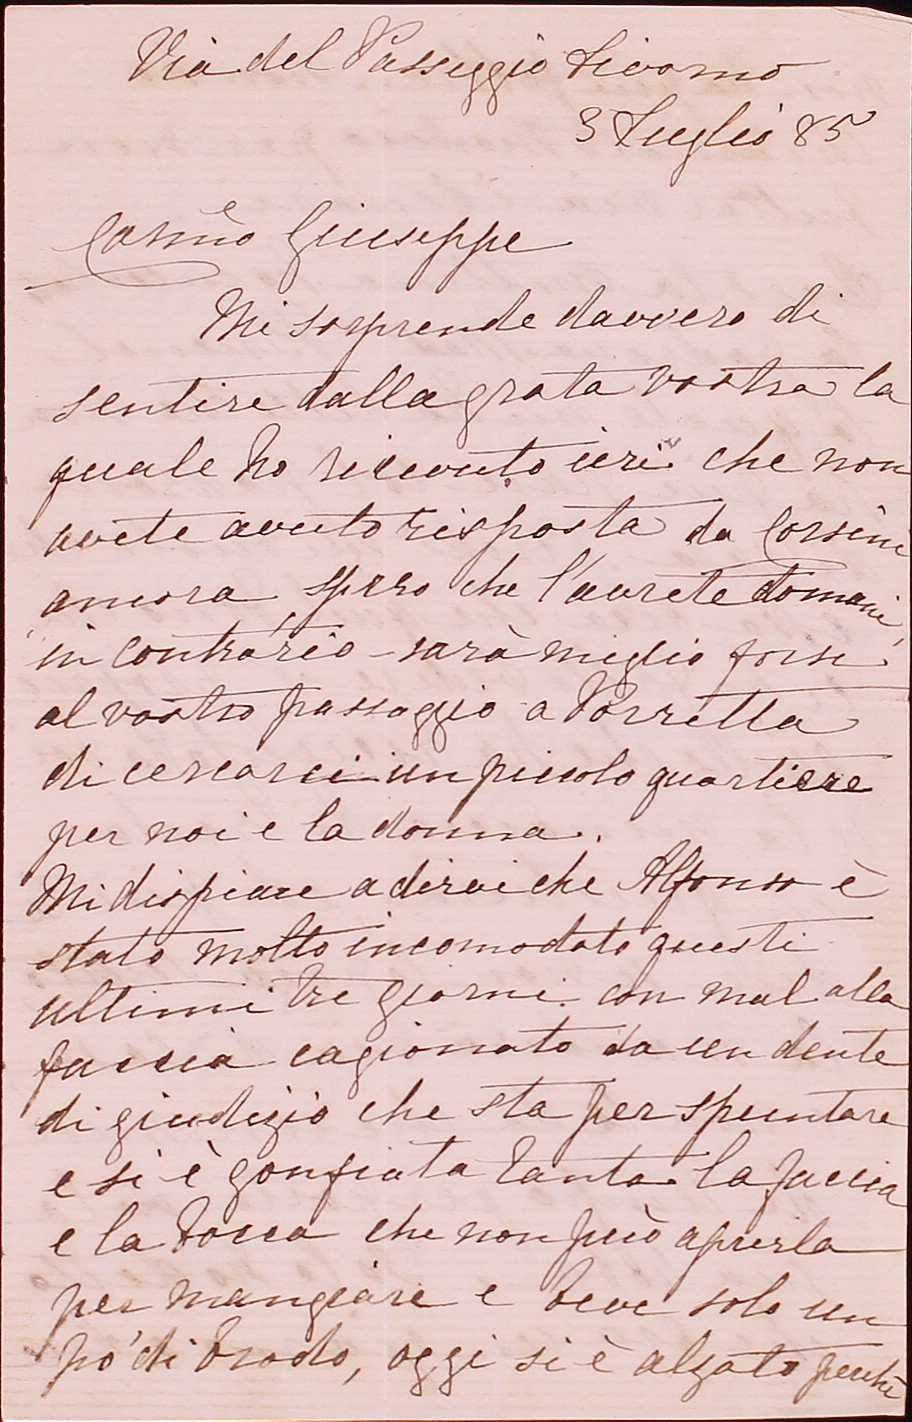 Via del Passeggio Livorno
3 Luglio 85
Carmo Giuseppe
Mi sorprende davvero di
sentire dalla grata vostra la
quale ho ricevuto ieri che non
avete avuto risposta da Corsini
ancora spero che l'avrete domani,
in contrario sarà meglio forse
al vostro passaggio a Porretta
di cercarci un piccolo quartiere
per noi e la donna.
Mi dispiace a dirvi che Alfonso è
stato molto incomodato questi
ultimi tre giorni con mal alla
faccia cagionato da un dente
di giudizio che sta per spuntare
e si è gonfiata tanta la faccia
e la bocca che non può aprirla
per mangiare e beve solo un
pò di brodo, oggi si è alzato perchè